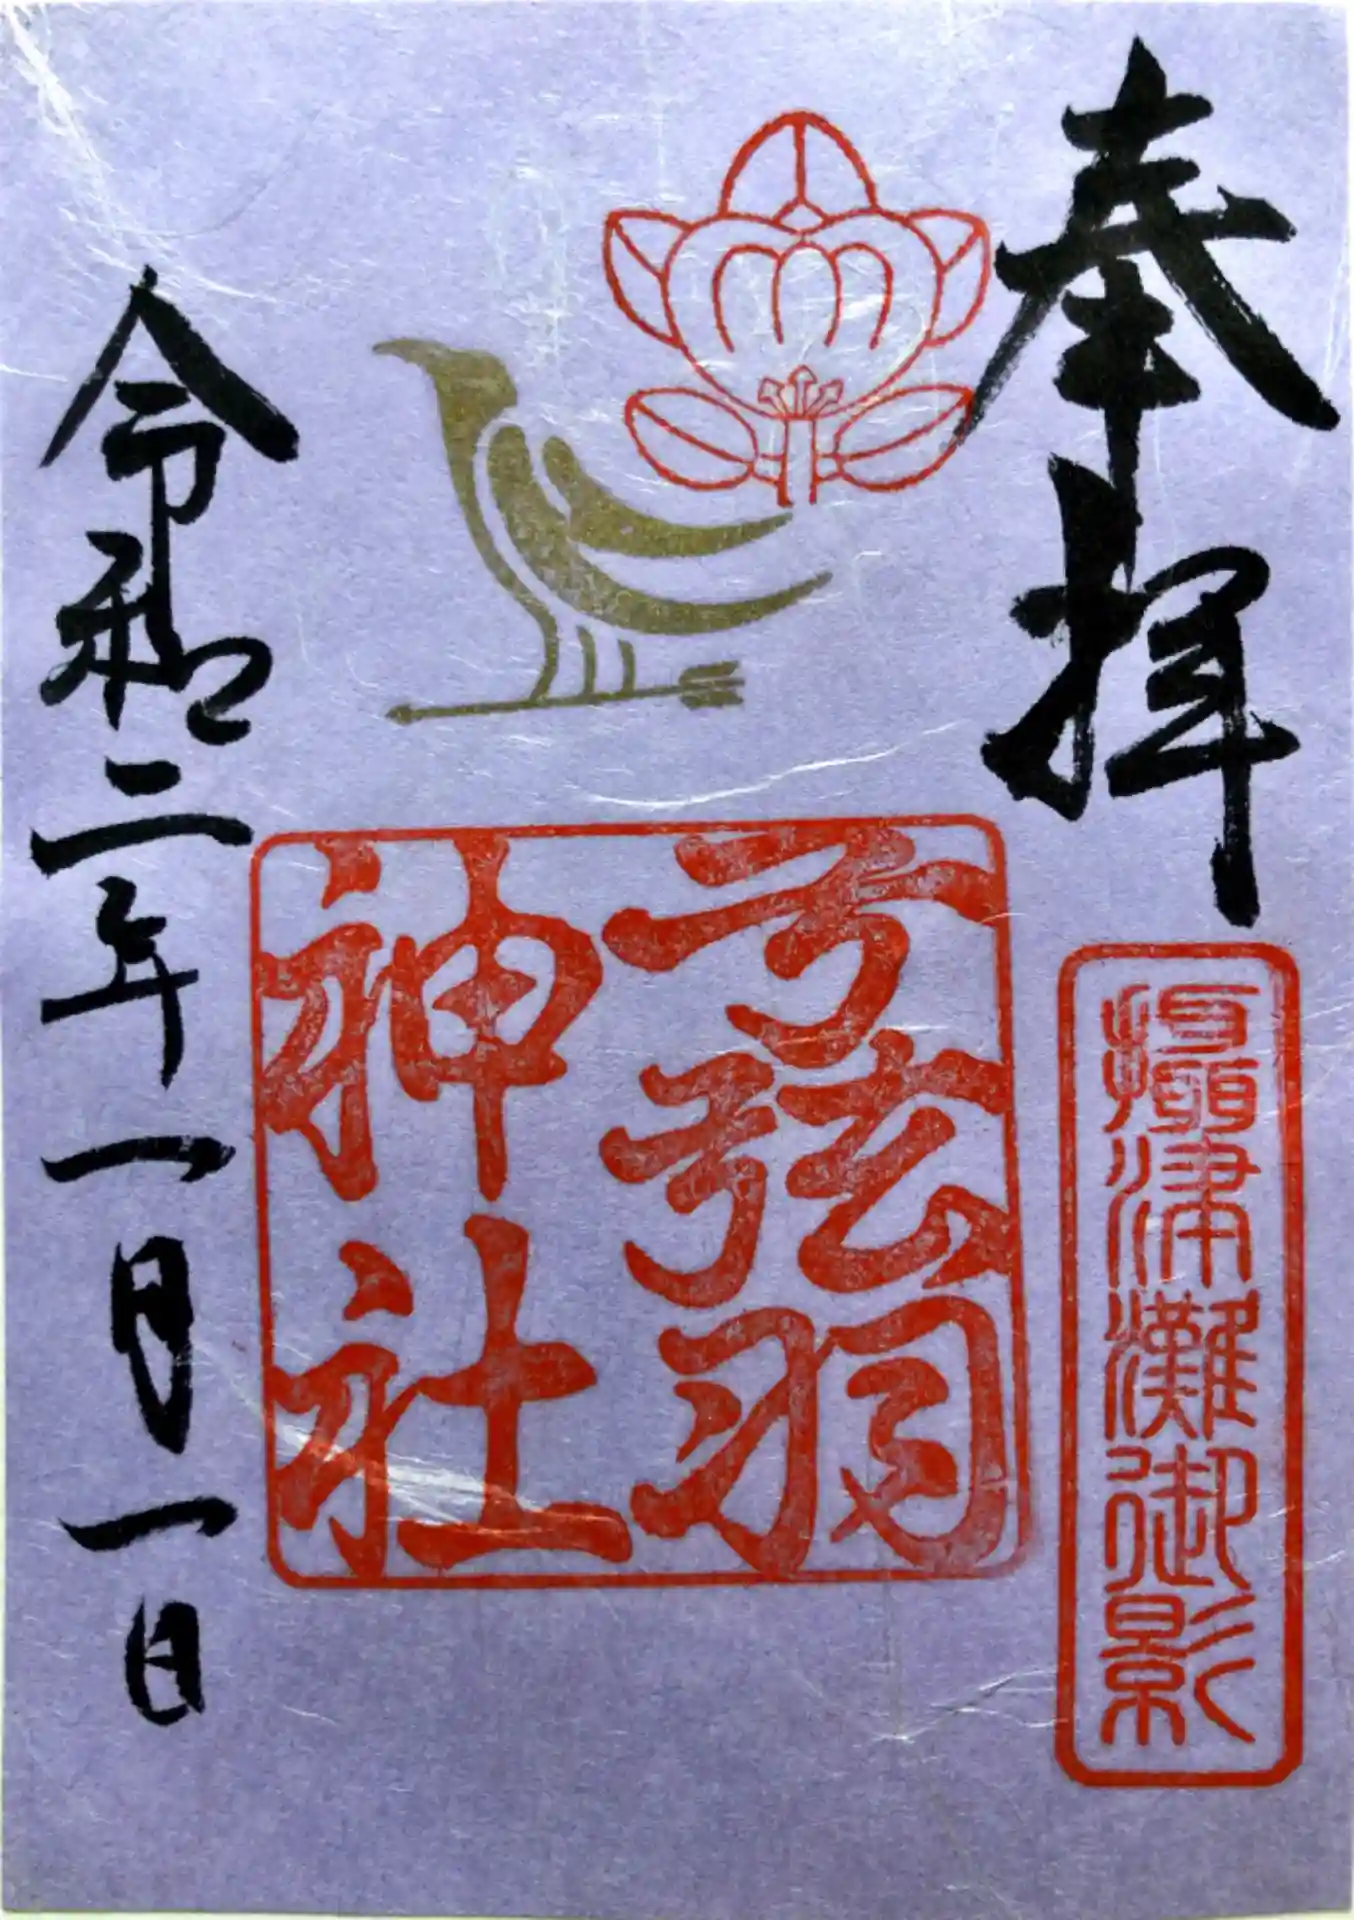 奉拝
摂津灘御影
弓弦羽
神社
令和二年一月一日